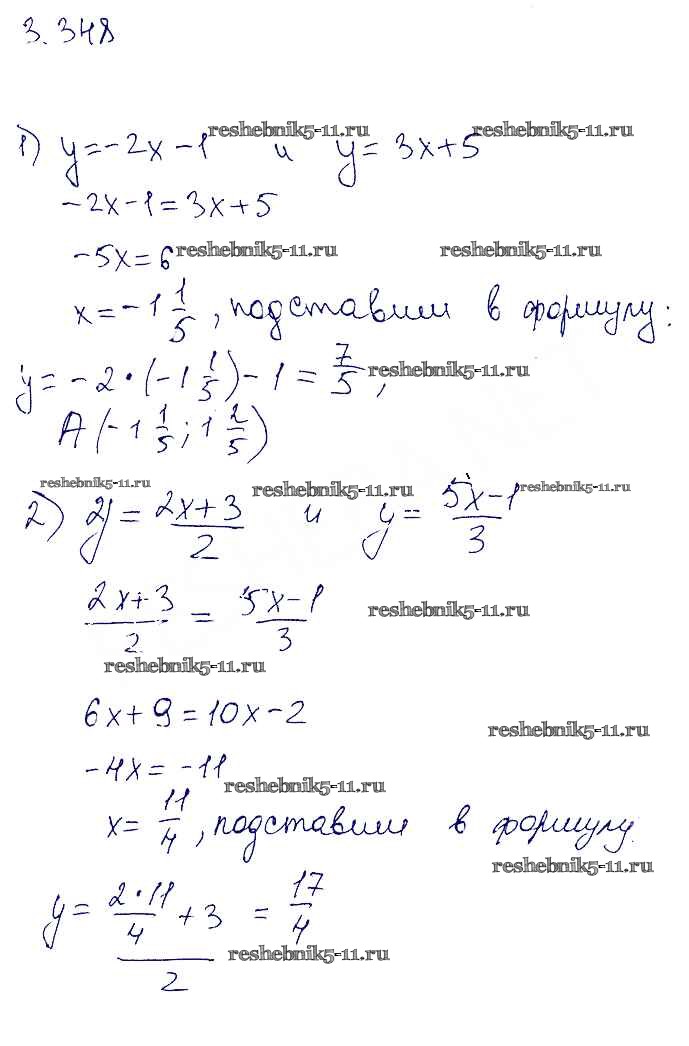 3.348
1) y=-2x-1 и y= 3x+5
reshebnik5-11.ru reshebnik5-11.ru
-2x-1=3x+5
-5x=6
reshebnik5-11.ru reshebnik5-11.ru
x=-1 1/5, подставим в формулу:
y= -2·(-1 1/5)-1= 7/5,
reshebnik5-11.ru
A(-1 1/5; 1 2/5)
reshebnik5-11.ru reshebnik5-11.ru reshebnik5-11.ru
2) y= (2x+3)/2 и y= (5x-1)/3
(2x+3)/2 = (5x-1)/3
reshebnik5-11.ru
reshebnik5-11.ru
6x+9=10x-2
reshebnik5-11.ru
-4x=-11
reshebnik5-11.ru
x= 11/4, подставим в формулу.
reshebnik5-11.ru
y= ((2·11)/4 + 3)/2 = 17/4
reshebnik5-11.ru